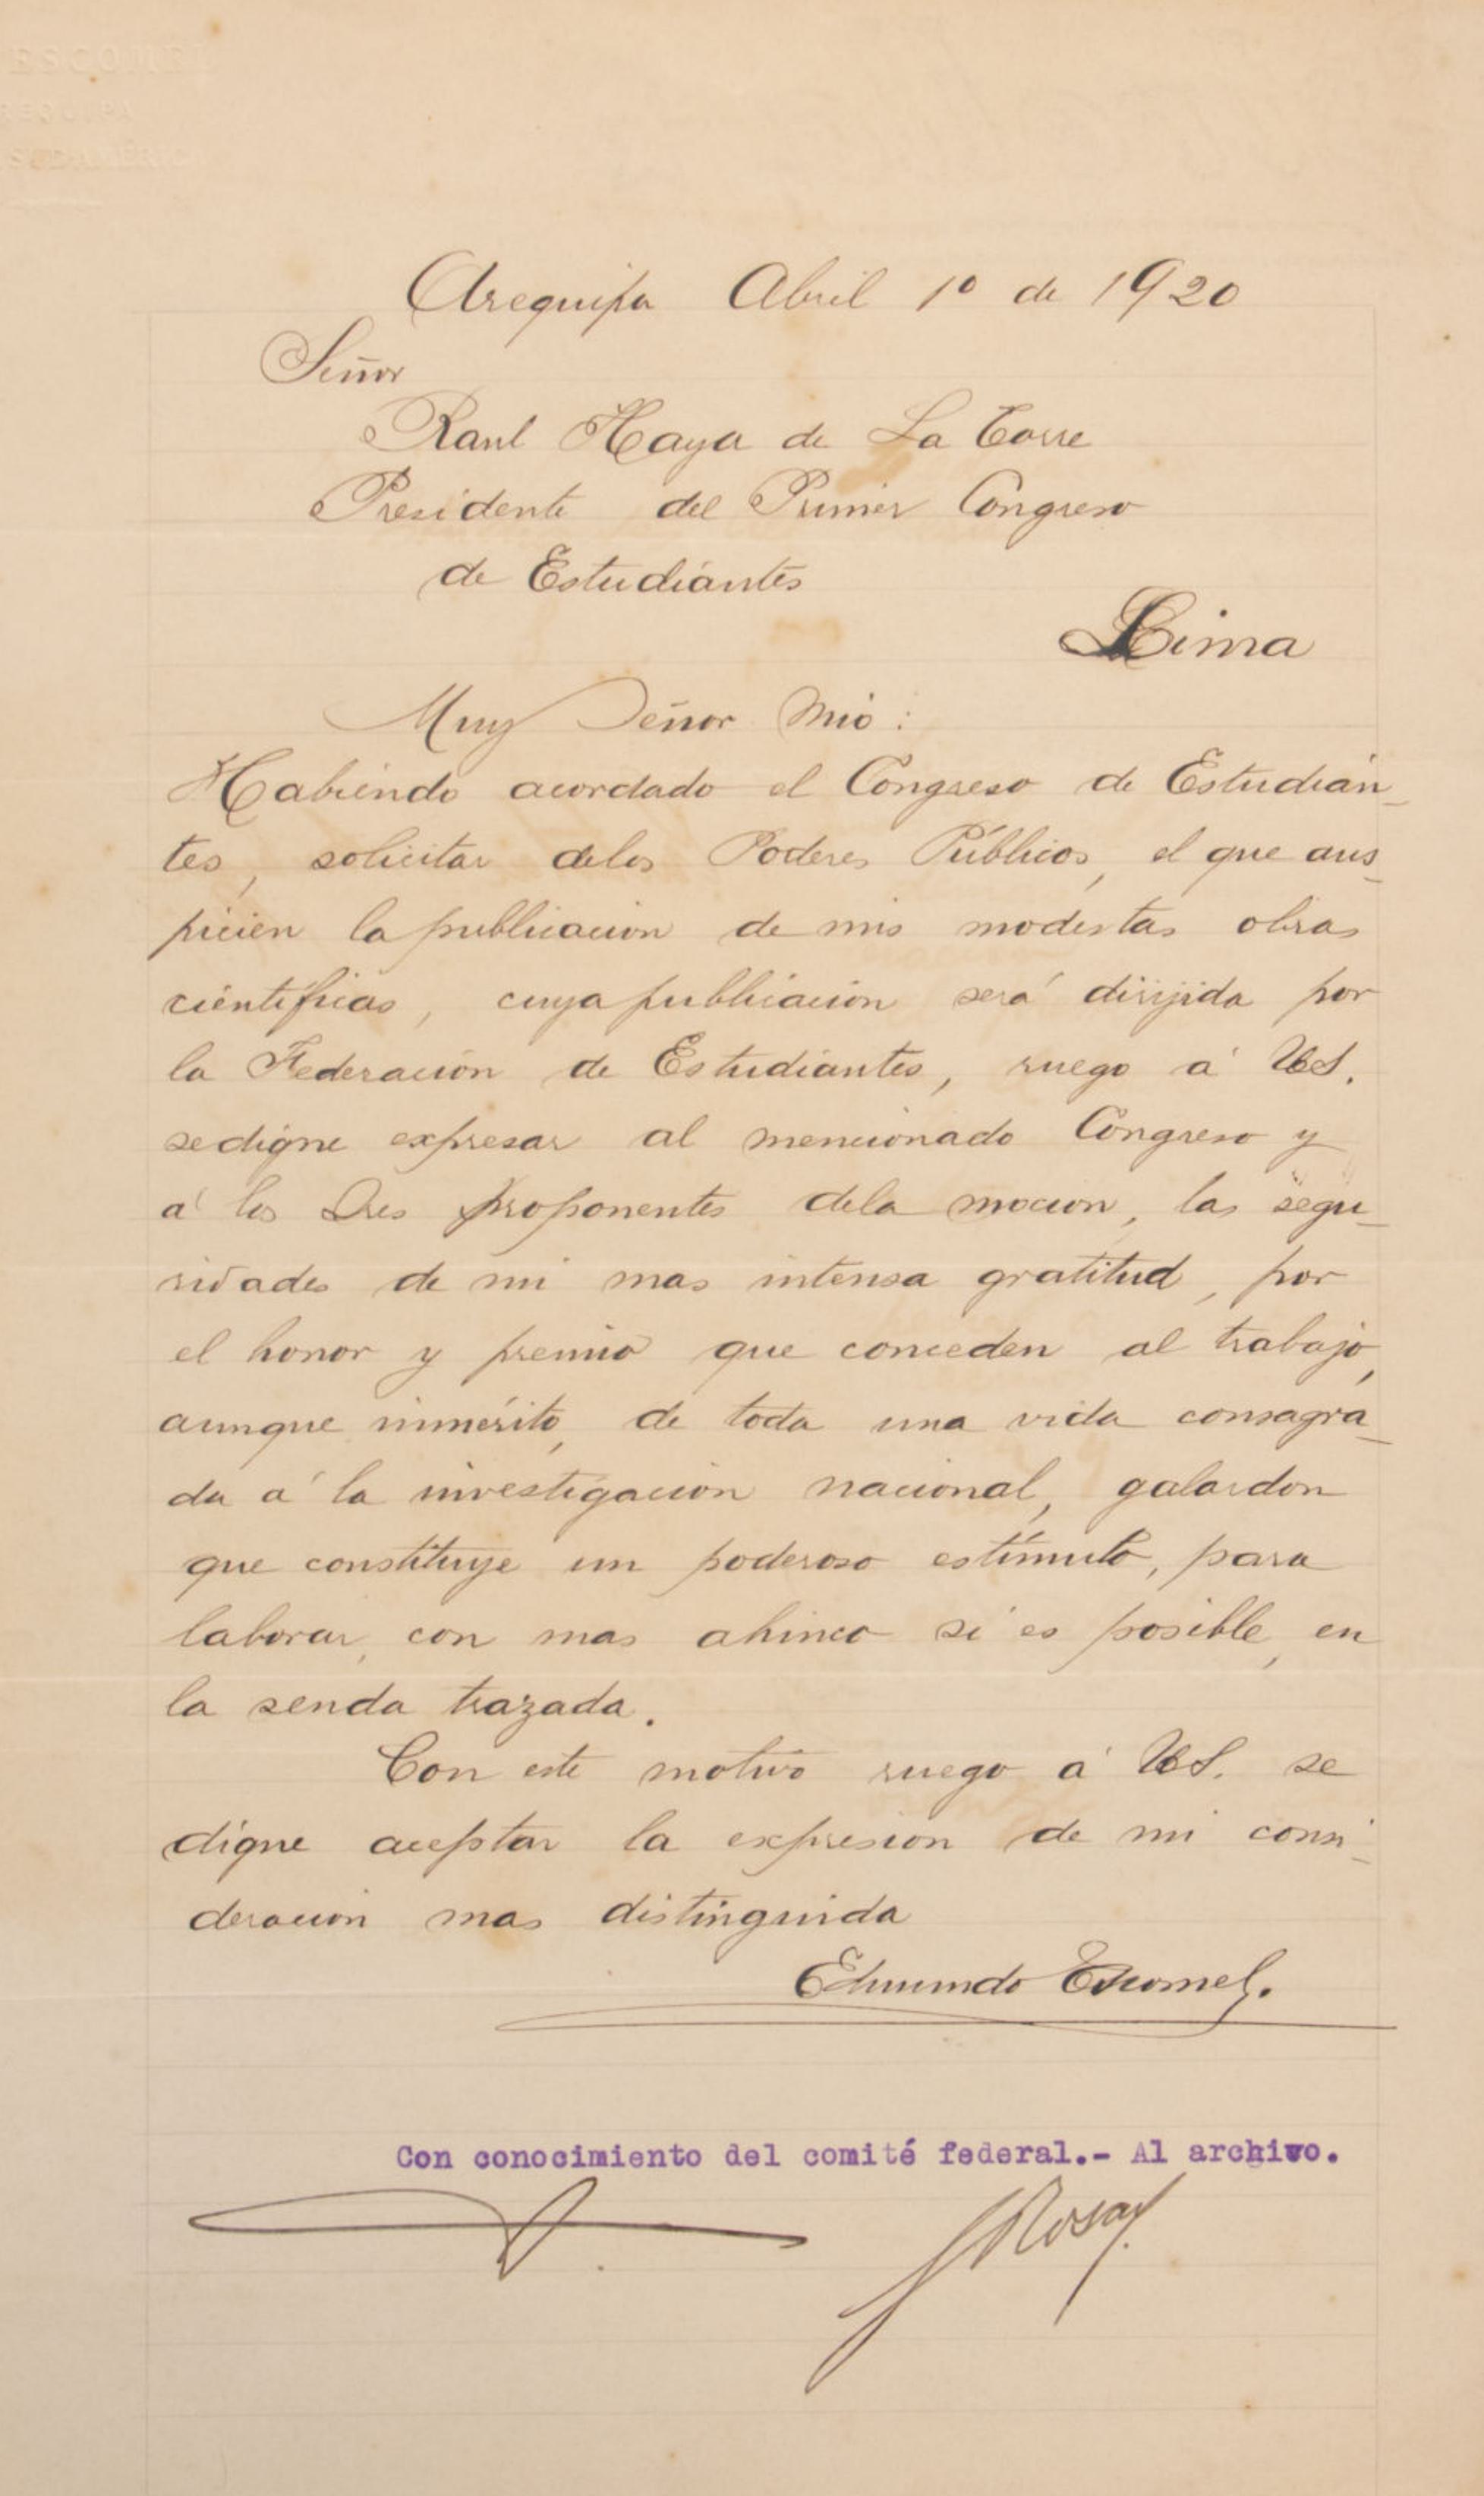 Arequipa Abril 1º de 1920
Señor
Raul Haya de La Torre
Presidente del Primer Congreso
de Estudiantes
Lima
Muy Señor Mio:
Habiendo acordado el Congreso de Estudian-
tes, solicitar delos Poderes Públicos, el que aus-
picien la publicacion de mis modestas obras
cientificas, cuya publicacion será dirijida por
la Federacion de Estudiantes, ruego á US.
sedigne expresar al mencionado Congreso y
á los Dres proponentes dela mocion, las segu-
ridades de mi mas intensa gratitud, por
el honor y premio que conceden al trabajo,
aunque inmérito, de toda una vida consagra-
da á la investigacion nacional, galardon
que constituye un poderoso estímulo, para
laborar, con mas ahinco si es posible, en
la senda trazada.
Con este motivo ruego á US. se
digne aceptar la expresion de mi consi-
deracion mas distinguida
Edmundo Escomel.
Con conocimiento del comité federal.- Al archivo.